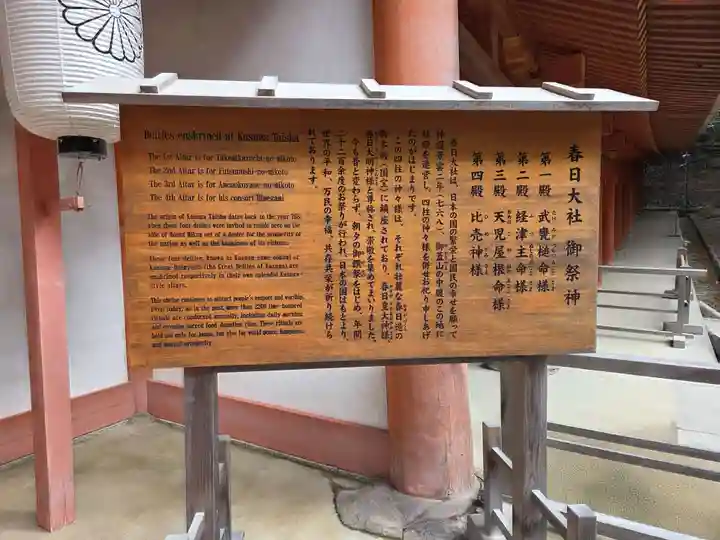 春日大社 御祭神
第一殿 武甕槌命様
第二殿 経津主命様
第三殿 天児屋根命様
第四殿 比売神様
春日大社は、日本の国の繁栄と国民の幸せを願って
神護景雲二年(七六八)、御蓋山の中腹のこの地に
社殿を造営し、四柱の神々様を併せお祀り申しあげ
たのがはじまりです。
この四柱の神々様は、それぞれ壮麗な春日造の
御本殿(国宝)に鎮座されており、春日皇大神様
春日大明神様と尊称され、崇敬を集めてまいりました。
今も昔と変わらず、朝夕の御饌祭をはじめ、年間
二千二百余度のお祭りが行われ、日本の国はもとより、
世界の平和、万民の幸福、共存共栄が祈り続けら
れております。
Deities enshrined at Kasuga Taisha
The 1st Altar is for Takemikazuchi-no-mikoto
The 2nd Altar is for Futsunushi-no-mikoto
The 3rd Altar is for Amenokoyane-no-mikoto
The 4th Altar is for his consort Himegami
The origin of Kasuga Taisha dates back to the year 768
when these four deities were invited to reside here on the
side of Mount Mikasa out of a desire for the prosperity of
the nation as well as the happiness of its citizens.
These four deities, known
Kasuga (the Great Deities of Kasuga) are
enshrined respectively in their own splendid Kasuga-
style altars.
This shrine continues to attract people's respect and worship.
Even today, as in the past, more than 2200 time-honored
rituals are conducted annually, including daily morning
and evening sacred food donation rites. These rituals are
held not only for Japan, but also for world peace, happiness,
and mutual prosperity.